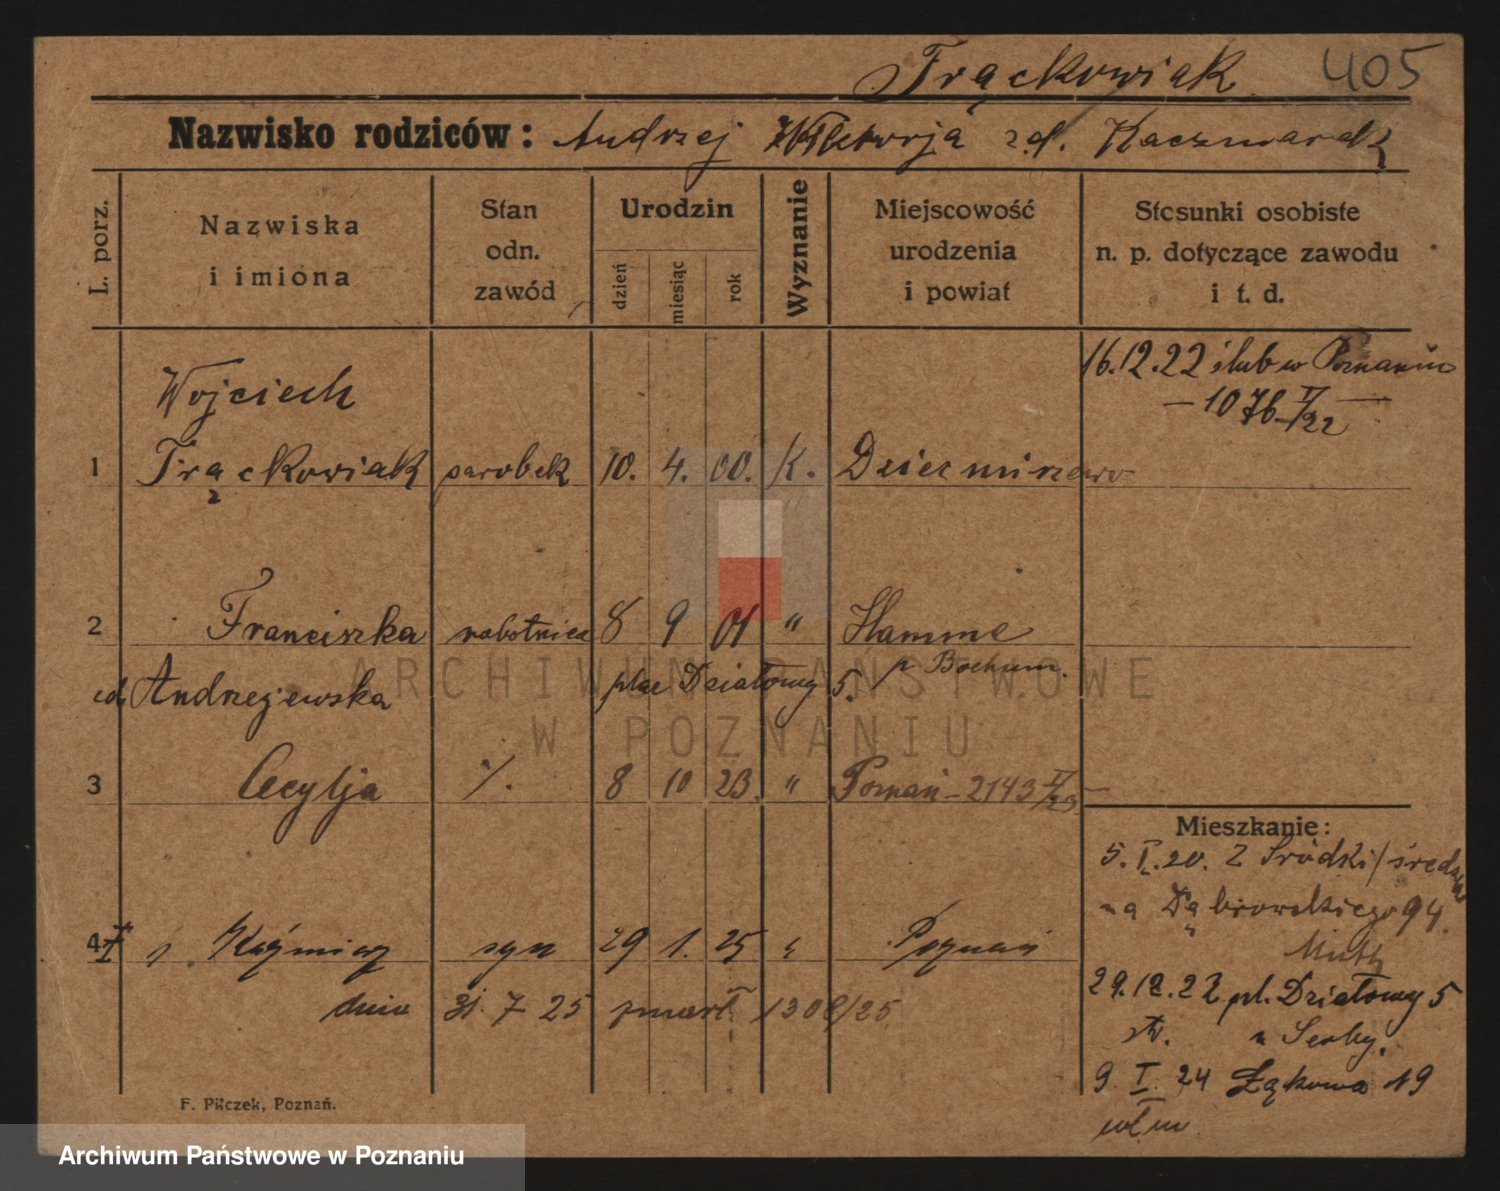 Trąckowiak 405
Nazwisko rodziców: Andrzej Wiktorja z d. Kaczmarek
L. porz.
Nazwiska
i imiona
Stan
odn.
zawód
Urodzin
dzień
miesiąc
rok
Wyznanie
Miejscowość
urodzenia
i powiat
Stosunki osobiste
n. p. dotyczące zawodu
i t. d.
16.12.22 ślub w Poznaniu
— 1076 V/22 —
Wojciech
1 Trąckowiak parobek 10. 4. 00. K. Dzierzmirzewo
2 Franciszka robotnica 8 9 01 " Hamme
p Bochum.
zd. Andrzejewska plac Działowy 5.
3 Cecylja ·/. 8 10 23. " Poznań – 2143 V/23 —
Mieszkanie:
5. I. 20. z Śródki/
na Dąbrowskiego 94.
4 s. Kaźmierz syn 29 1. 25 " Poznań
dnia 31. 7 25 zmarł 1308/25
29.12.22 pl. Działowy 5
u
9. I. 24 Łąkowa 19
F. Pilczek, Poznań.
ARCHIWUM PAŃSTWOWE
W POZNANIU
Archiwum Państwowe w Poznaniu